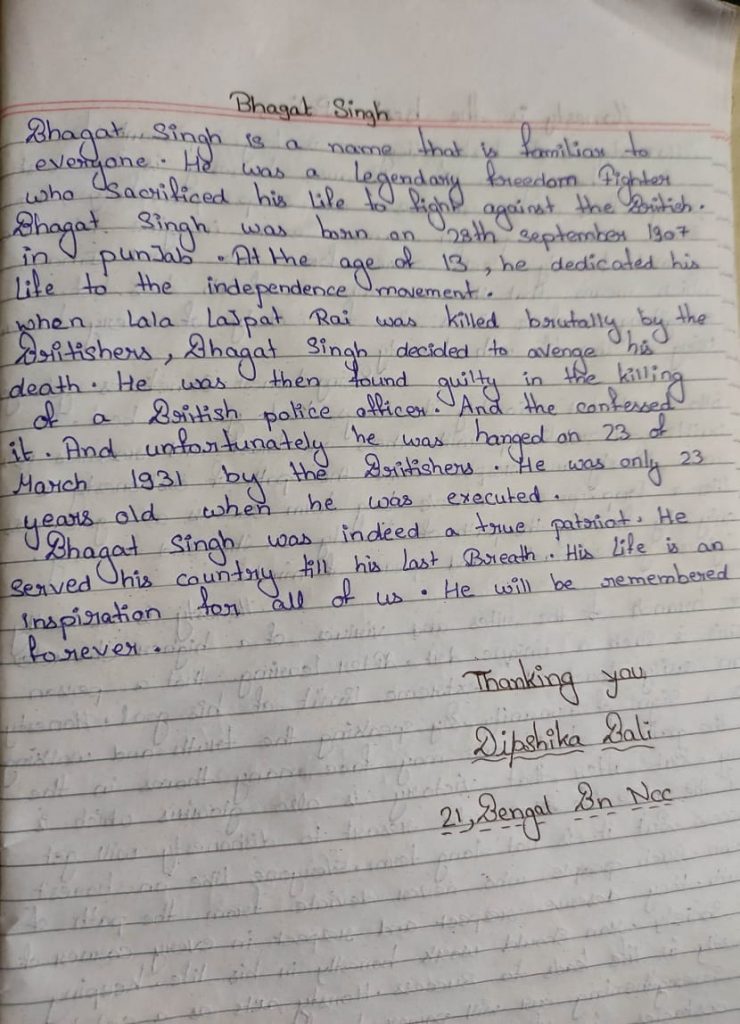 Bhagat Singh
Bhagat Singh is a name that is familiar to
everyone. He was a legendary freedom fighter
who sacrificed his life to fight against the British.
Bhagat Singh was born on 28th september 1907
in punJab. At the age of 13, he dedicated his
life to the independence movement.
when Lala LaJpat Rai was killed brutally by the
Britishers, Bhagat Singh decided to avenge his
death. He was then found guilty in the killing
of a British police officer. And the confessed
it. And unfortunately he was hanged on 23 of
March 1931 by the Britishers. He was only 23
years old when he was executed.
Bhagat Singh was indeed a true patriot. He
served his country till his Last Breath. His Life is an
inspiration for all of us. He will be remembered
forever.
Thanking you
Dipshika Bali
21, Bengal Bn Ncc